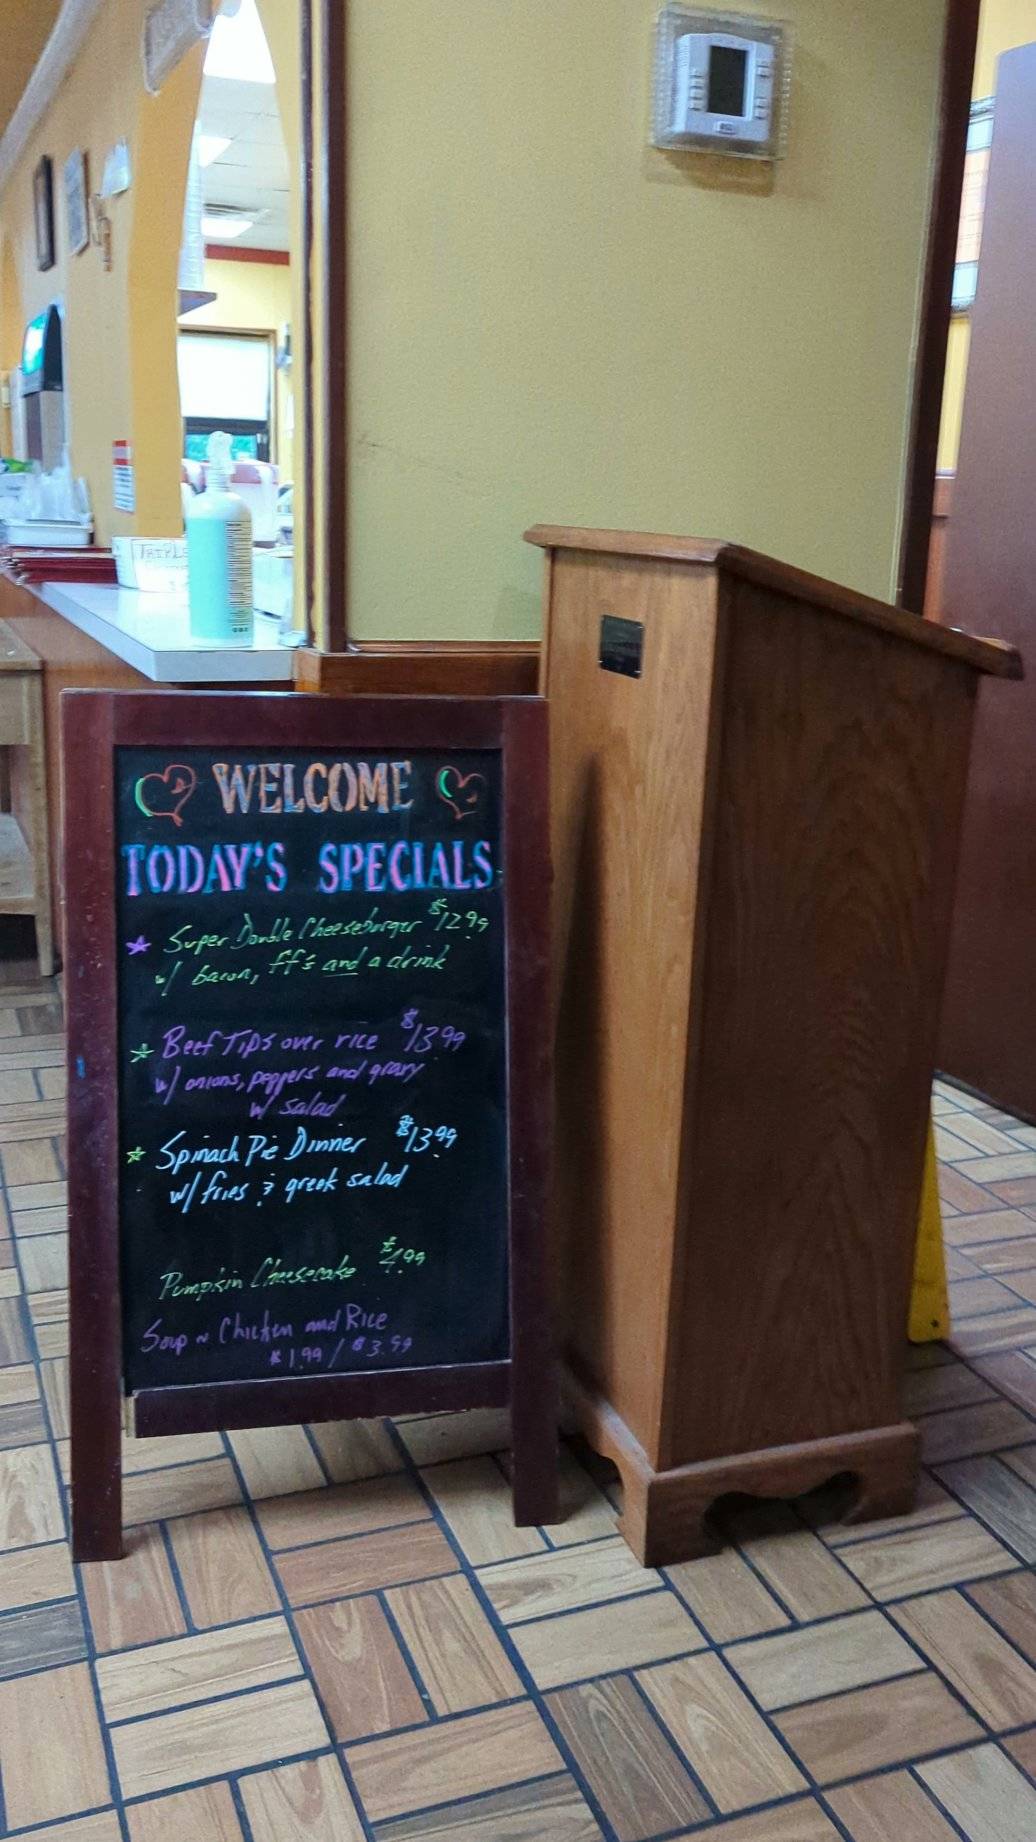 TRIPLE
WELCOME
TODAY'S SPECIALS
Super Double Cheeseburger $12.99
w/ bacon, ff's and a drink
Beef Tips over rice $13.99
w/ onions, peppers and gravy
w/ salad
Spinach Pie Dinner $13.99
w/ fries & greek salad
Pumpkin Cheesecake $4.99
Soup ~ Chicken and Rice
$1.99 / $3.99